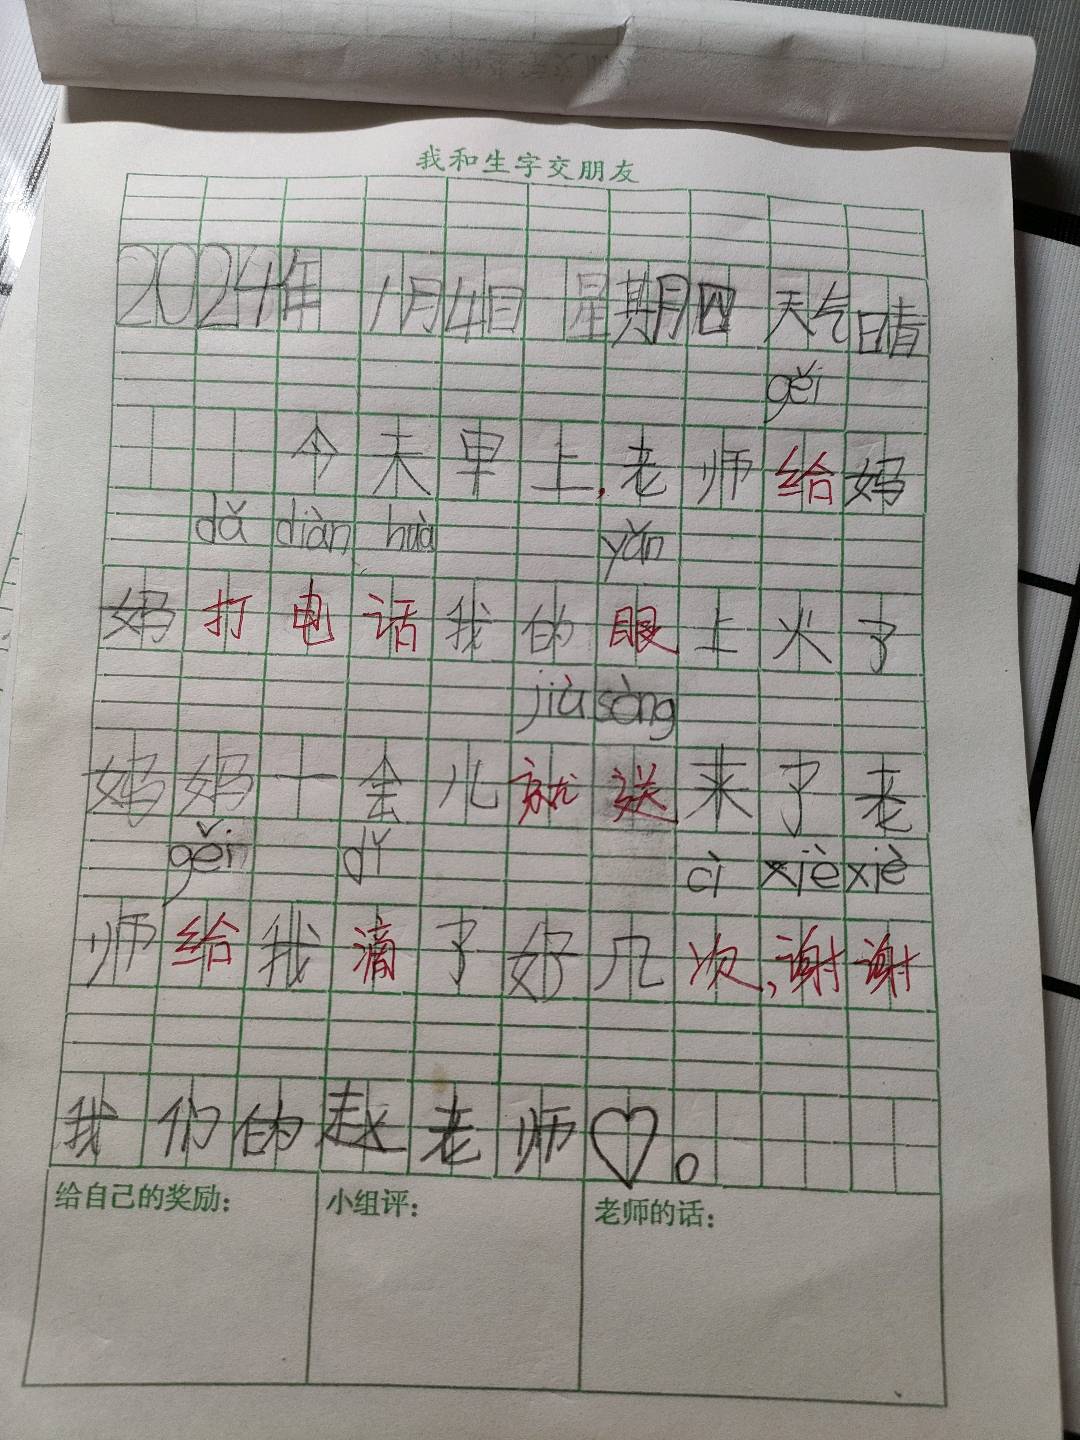 我和生字交朋友
2024年 1月4日 星期四 天气晴
gěi
今天早上,老师给妈
dǎ diàn huà yǎn
妈打电话我的眼上火了
jiù sòng
妈妈一会儿就送来了老
gěi dī cì xiè xiè
师给我滴了好几次,谢谢
我们的赵老师♡。
给自己的奖励: 小组评: 老师的话: